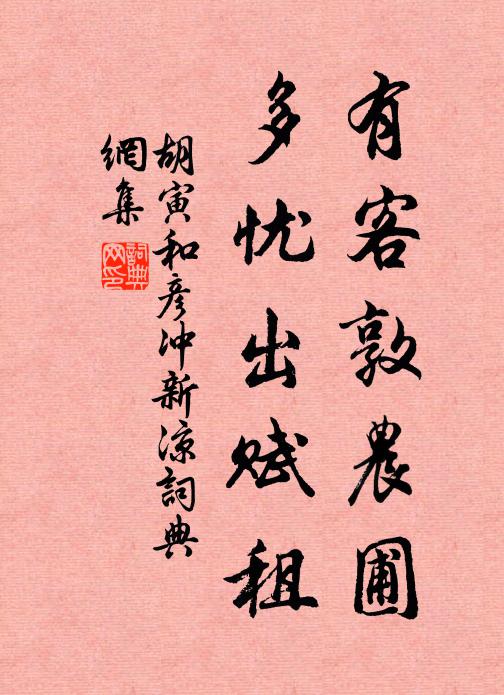 有客敦農圃
多忧出赋租
胡寅和彦冲新凉詞典
網集
詞典网印